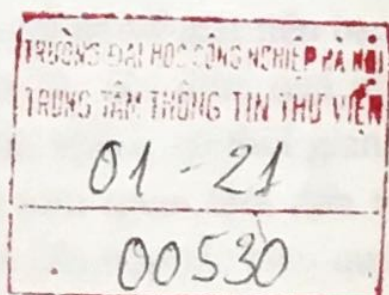 TRƯỜNG ĐẠI HỌC CÔNG NGHIỆP HÀ NỘI
TRUNG TÂM THÔNG TIN THƯ VIỆN
01 - 21
00530